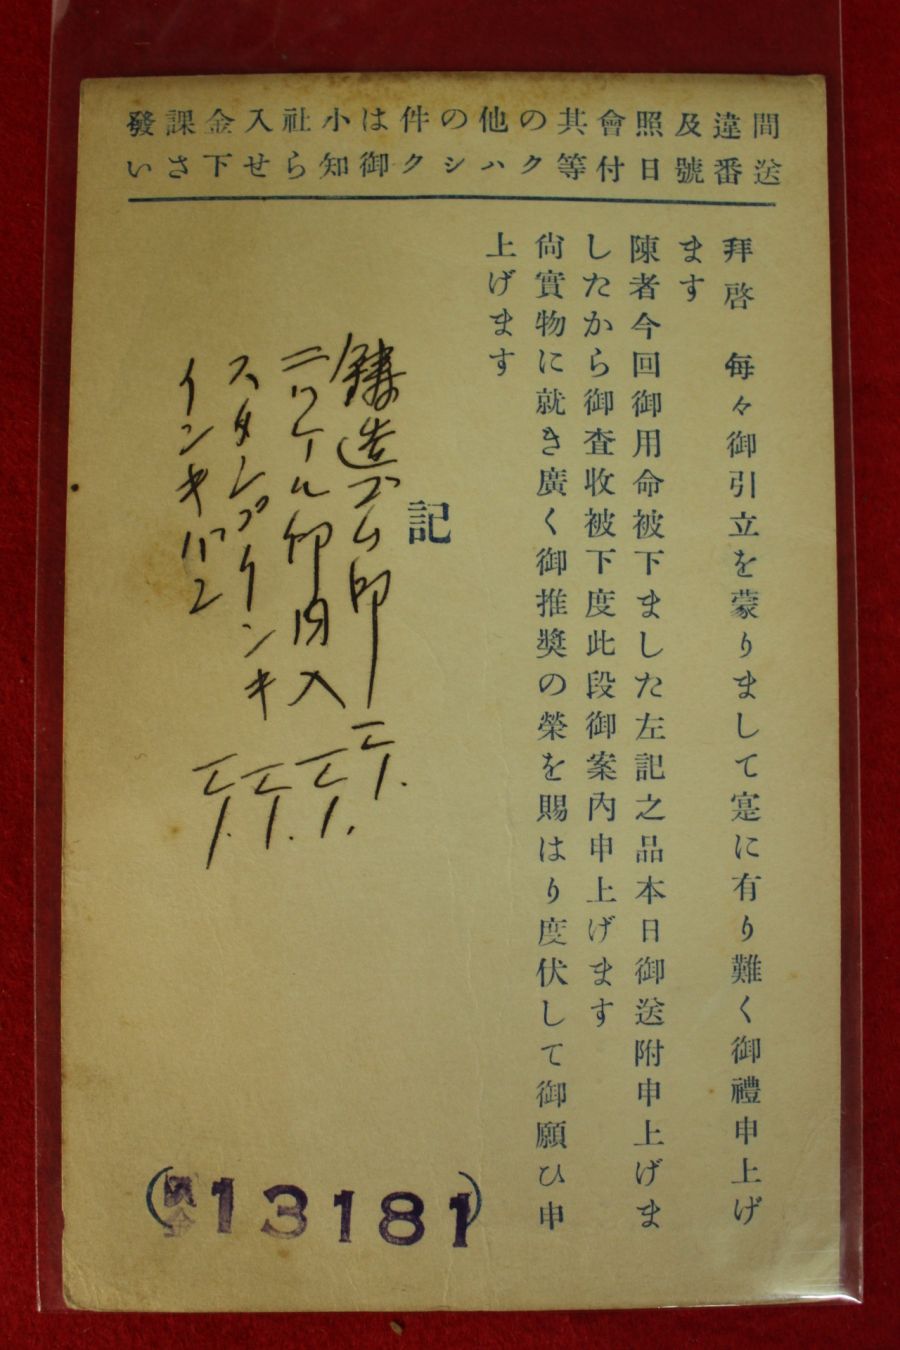 間違及照會其の他の件は小社入金課發
送番號日付等クハシク御知らせ下さい
拜啓 每々御引立を蒙りまして寔に有り難く御禮申上げ
ます
陳者今回御用命被下ました左記之品本日御送附申上げま
したから御査收被下度此段御案內申上げます
尙實物に就き廣く御推奬の榮を賜はり度伏して御願ひ申
上げます
記
鑄造ゴム印 一ケ.
ニッケル印肉入 一ケ.
スタンプインキ 一ケ.
一ケ.
(13181)